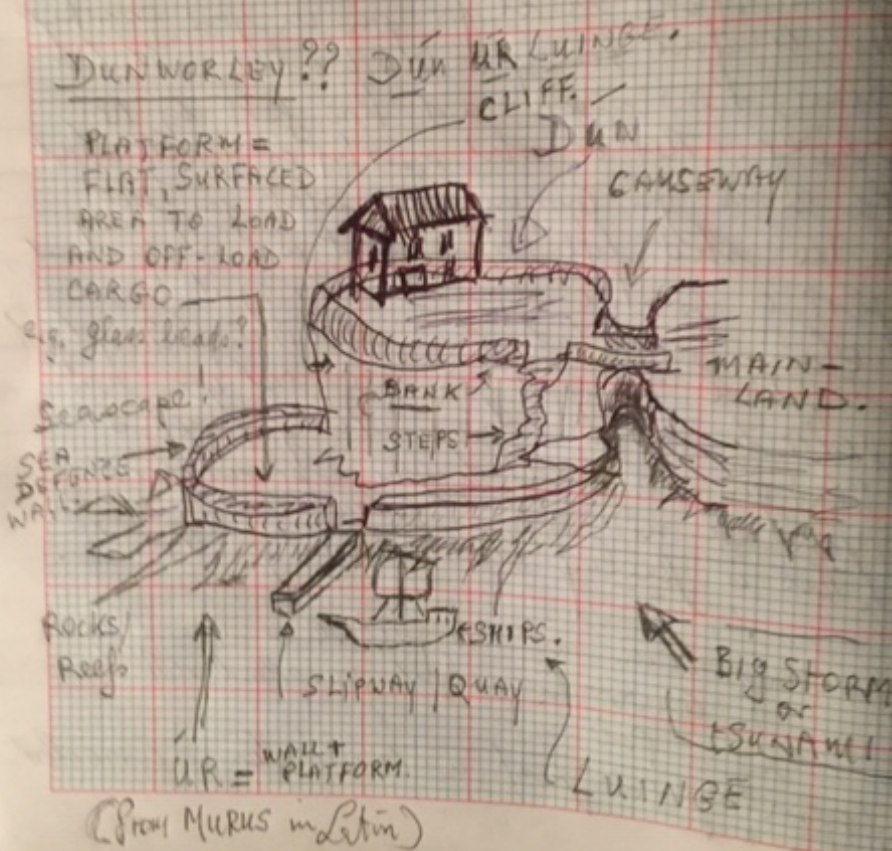 DUNWORLEY?? Dún ÚR LUINGE.
CLIFF.
DÚN
PLATFORM =
FLAT, SURFACED
AREA TO LOAD
AND OFF-LOAD
CARGO
e.g. glass beads?
CAUSEWAY
MAIN-
LAND.
BANK
STEPS
Seascape!
SEA
DEFENCE
WALL
ROCKS/
Reefs
SHIPS.
SLIPWAY/QUAY
BIG STORM
or
tSUNAMI
ÚR = WALL +
PLATFORM.
LUINGE
(from MURUS in Latin)